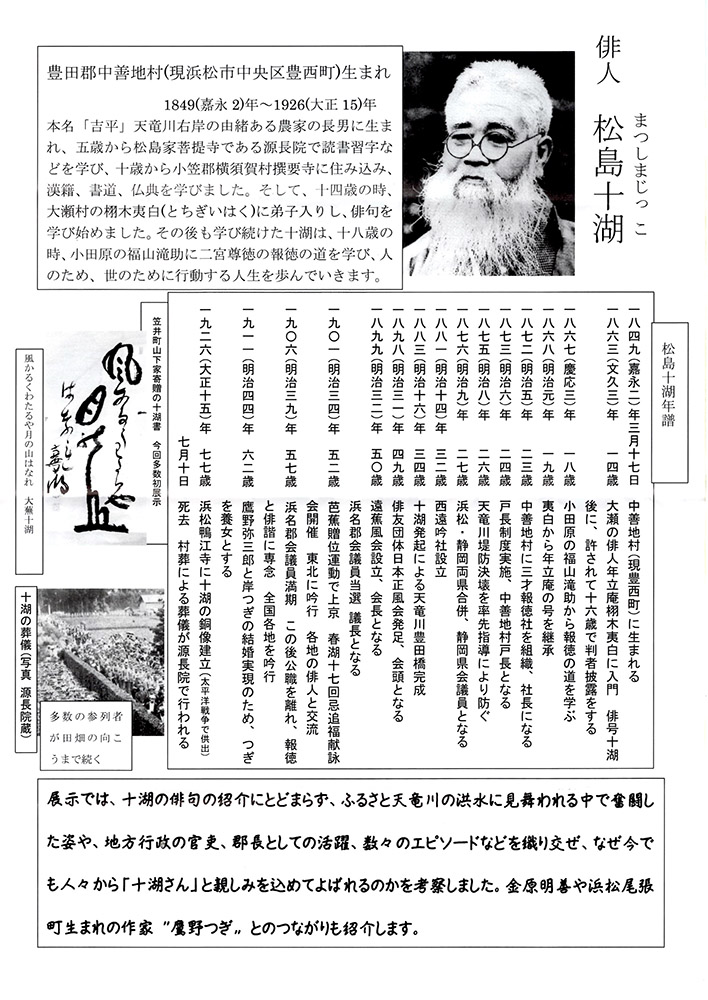 俳人 松島十湖
まつしまじっこ
豊田郡中善地村(現浜松市中央区豊西町)生まれ
1849(嘉永2)年～1926(大正15)年
本名「吉平」天竜川右岸の由緒ある農家の長男に生ま
れ、五歳から松島家菩提寺である源長院で読書習字な
どを学び、十歳から小笠郡横須賀村撰要寺に住み込み、
漢籍、書道、仏典を学びました。そして、十四歳の時、
大瀬村の栩木夷白(とちぎいはく)に弟子入りし、俳句を
学び始めました。その後も学び続けた十湖は、十八歳の
時、小田原の福山滝助に二宮尊徳の報徳の道を学び、人
のため、世のために行動する人生を歩んでいきます。
松島十湖年譜
一八四九(嘉永二)年三月十七日 中善地村(現豊西町)に生まれる
一八六三(文久三)年 一四歳 大瀬の俳人年立庵栩木夷白に入門 俳号十湖
後に、許されて十六歳で判者披露をする
一八六七(慶応三)年 一八歳 小田原の福山滝助から報徳の道を学ぶ
一八六八(明治元)年 一九歳 夷白から年立庵の号を継承
一八七二(明治五)年 二三歳 中善地村に三才報徳社を組織、社長になる
一八七三(明治六)年 二四歳 戸長制度実施、中善地村戸長となる
一八七五(明治八)年 二六歳 天竜川堤防決壊を率先指導により防ぐ
一八七六(明治九)年 二七歳 浜松・静岡両県合併、静岡県会議員となる
一八八一(明治十四)年 三二歳 西遠吟社設立
一八八三(明治十六)年 三四歳 十湖発起による天竜川豊田橋完成
一八九八(明治三一)年 四九歳 俳友団体日本正風会発足、会頭となる
一八九九(明治三二)年 五〇歳 遠蕉風会設立、会長となる
浜名郡会議員当選 議長となる
一九〇一(明治三四)年 五二歳 芭蕉贈位運動で上京 春湖十七回忌追福献詠
会開催 東北に吟行 各地の俳人と交流
一九〇六(明治三九)年 五七歳 浜名郡会議員満期 この後公職を離れ、報徳
と俳諧に専念 全国各地を吟行
一九一一(明治四四)年 六二歳 鷹野弥三郎と岸つぎの結婚実現のため、つぎ
を養女とする
一九二六(大正十五)年 七七歳 浜松鴨江寺に十湖の銅像建立(太平洋戦争で供出)
七月十日 死去 村葬による葬儀が源長院で行われる
笠井町山下家寄贈の十湖書 今回多数初展示
風かるくわたるや月の山はなれ 大蕪十湖
十湖の葬儀(写真 源長院蔵)
多数の参列者
が田畑の向こ
うまで続く
展示では、十湖の俳句の紹介にとどまらず、ふるさと天竜川の洪水に見舞われる中で奮闘し
た姿や、地方行政の官吏、郡長としての活躍、数々のエピソードなどを織り交ぜ、なぜ今で
も人々から「十湖さん」と親しみを込めてよばれるのかを考察しました。金原明善や浜松尾張
町生まれの作家〝鷹野つぎ〟とのつながりも紹介します。